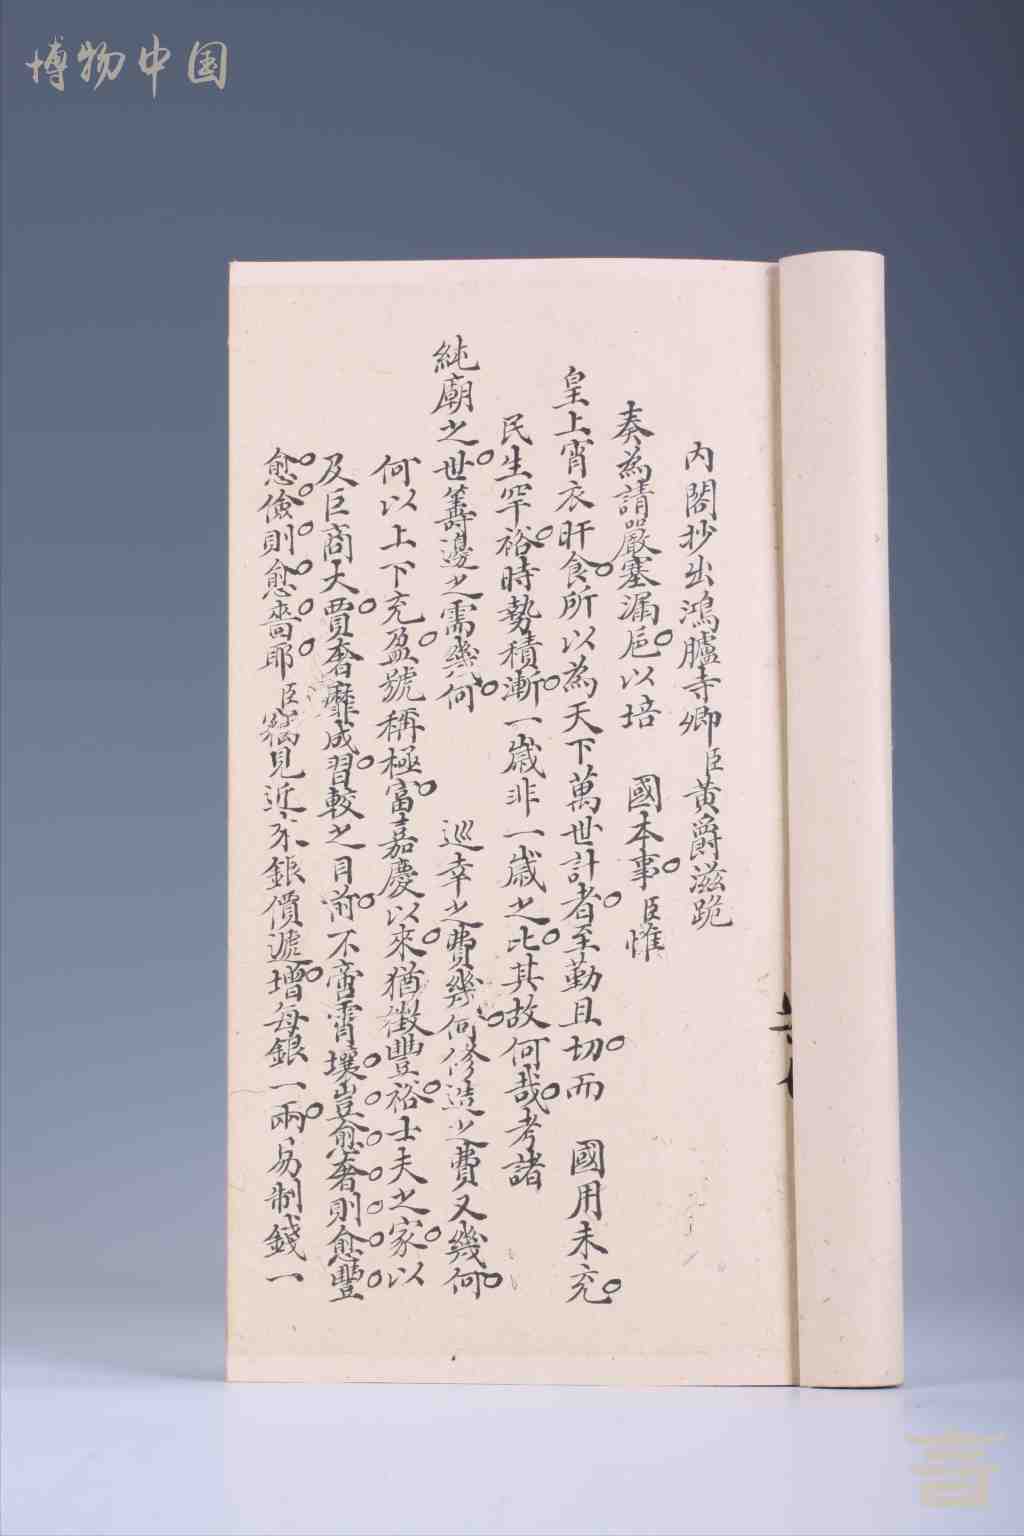 博物中国
内閣抄出鴻臚寺卿臣黄爵滋跪
奏為請嚴塞漏巵以培 國本事臣惟
皇上宵衣旰食所以為天下萬世計者至勤且切而 國用未充
民生罕裕時勢積漸一歲非一歲之比其故何哉考諸
純廟之世籌邊之需幾何 巡幸之費幾何修造之費又幾何
何以上下充盈號稱極富嘉慶以來猶徵豐裕士夫之家以
及巨商大賈奢靡成習較之目前不啻霄壤豈愈奢則愈豐
愈儉則愈嗇耶臣竊見近來銀價遞增每銀一兩易制錢一